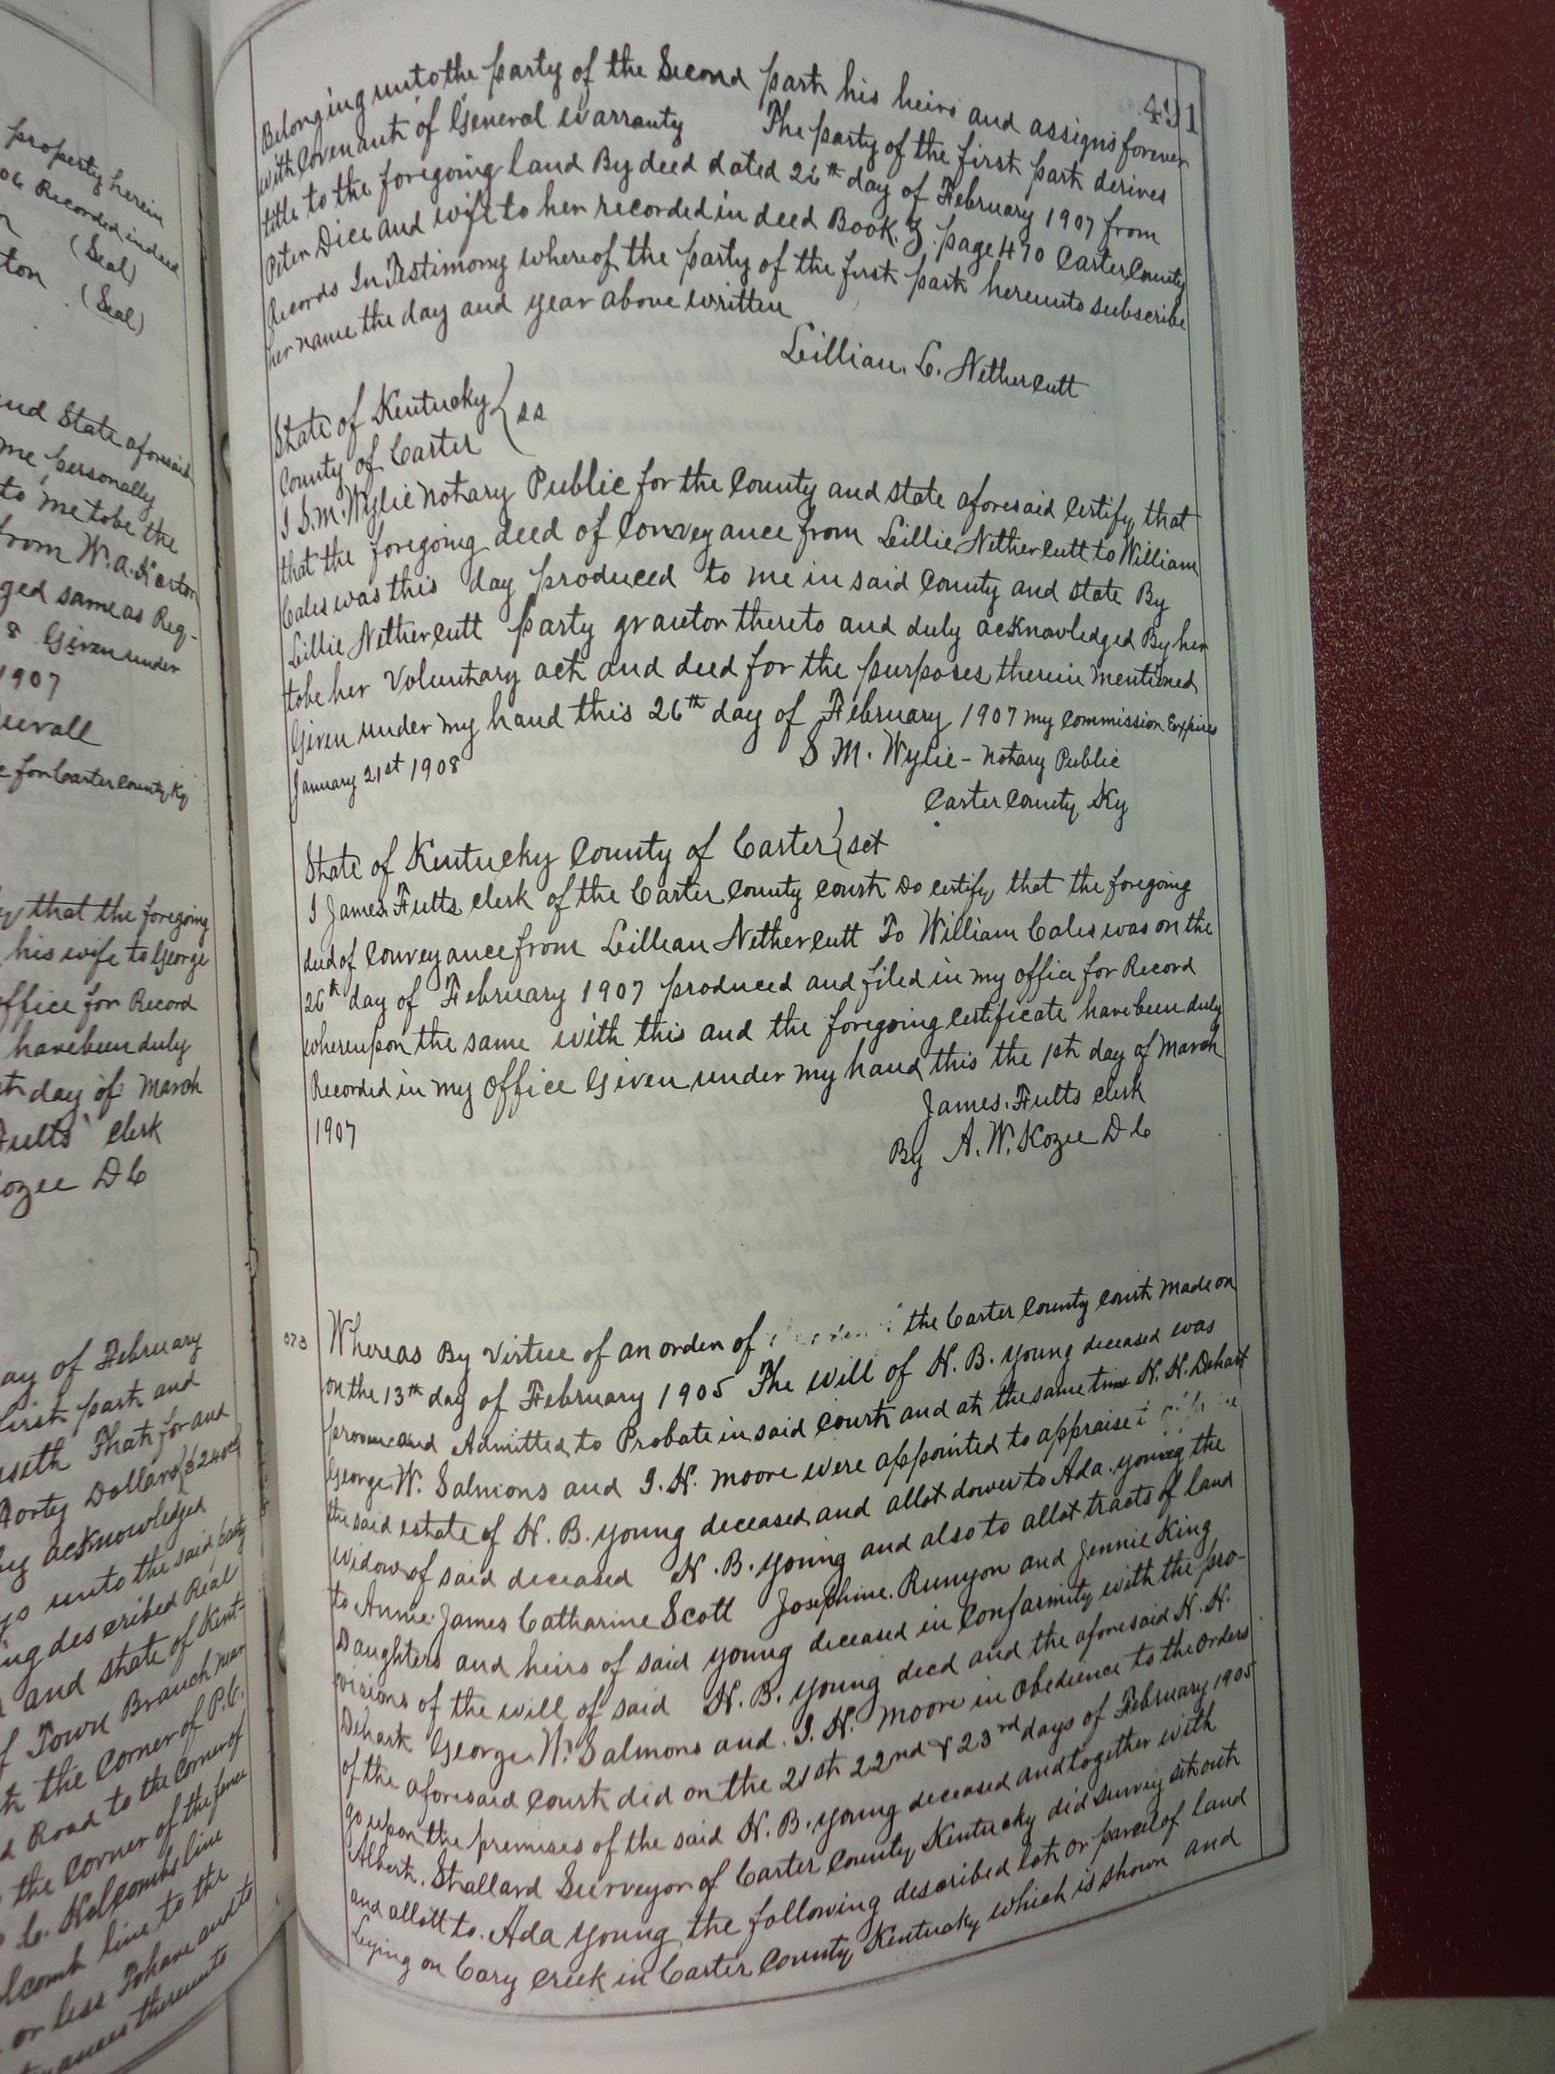 property herein
06 Recorded in deed
(Seal)
ton (Seal)
and State aforesaid
me personally
to me to be the
from W. A. Horton
ged same as Reg-
8 Given under
1907
Duvall
e for Carter County Ky
y that the foregoing
his wife to George
office for Record
have been duly
day of March
Fults Clerk
Kozee D C
ay of February
first part and
seth That for and
Forty Dollars $240 00
by acknowledged
ys unto the said party
ing described Real
and state of Kent-
f Town Branch near
th the Corner of P. C.
d Road to the Corner of
the Corner of the fence
. C. Holcombs line
olcomb line to the
or less To have and to
tenances thereunto
491
Belonging unto the party of the Second part his heirs and assigns forever
with Covenant of General Warranty The party of the first part derives
title to the foregoing land By deed dated 26th day of February 1907 from
Peter Dice and wife to her recorded in deed Book 3. page 470 Carter County
Records In Testimony whereof the party of the first part hereunto subscribe
her name the day and year above written
Lillian. C. Nethercutt
State of Kentucky } ss
County of Carter
I S. M. Wylie Notary Public for the County and state aforesaid Certify that
that the foregoing deed of Conveyance from Lillie Nethercutt to William
Cales was this day produced to me in said County and state By
Lillie Nethercutt party grantor thereto and duly acknowledged By her
to be her Voluntary act and deed for the purposes therein mentioned
Given under my hand this 26th day of February 1907 my Commission Expires
January 21st 1908
S M. Wylie - Notary Public
Carter County Ky
State of Kentucky County of Carter } sct
I James Fults Clerk of the Carter County Court Do certify that the foregoing
deed of Conveyance from Lillian Nethercutt To William Cales was on the
26th day of February 1907 produced and filed in my office for Record
whereupon the same with this and the foregoing certificate have been duly
Recorded in my office Given under my hand this the 1st day of March
1907
James. Fults Clerk
By A. W. Kozee D C
073
Whereas By Virtue of an order of the Carter County Court Made on
on the 13th day of February 1905 The will of H. B. Young deceased was
proven and Admitted to Probate in said Court and at the same time H. H. Dehart
George. W. Salmons and I. H. Moore were appointed to appraise
the said estate of H. B. Young deceased and allot dower to Ada. Young the
widow of said deceased H. B. Young and also to allot tracts of land
to Annie. James Catharine Scott Josephine. Runyon and Jennie King
Daughters and heirs of said Young deceased in Conformity with the pro-
visions of the will of said H. B. Young decd and the aforesaid H. H.
Dehart George W. Salmons and. I. H. Moore in Obedience to the Orders
of the aforesaid Court did on the 21st 22nd & 23rd days of February 1905
go upon the premises of the said H. B. Young deceased and together with
Albert. Stallard Surveyor of Carter County Kentucky did Survey set out
and allott to. Ada Young the following described lot or parcel of land
Lying on Cary Creek in Carter County Kentucky which is shown and